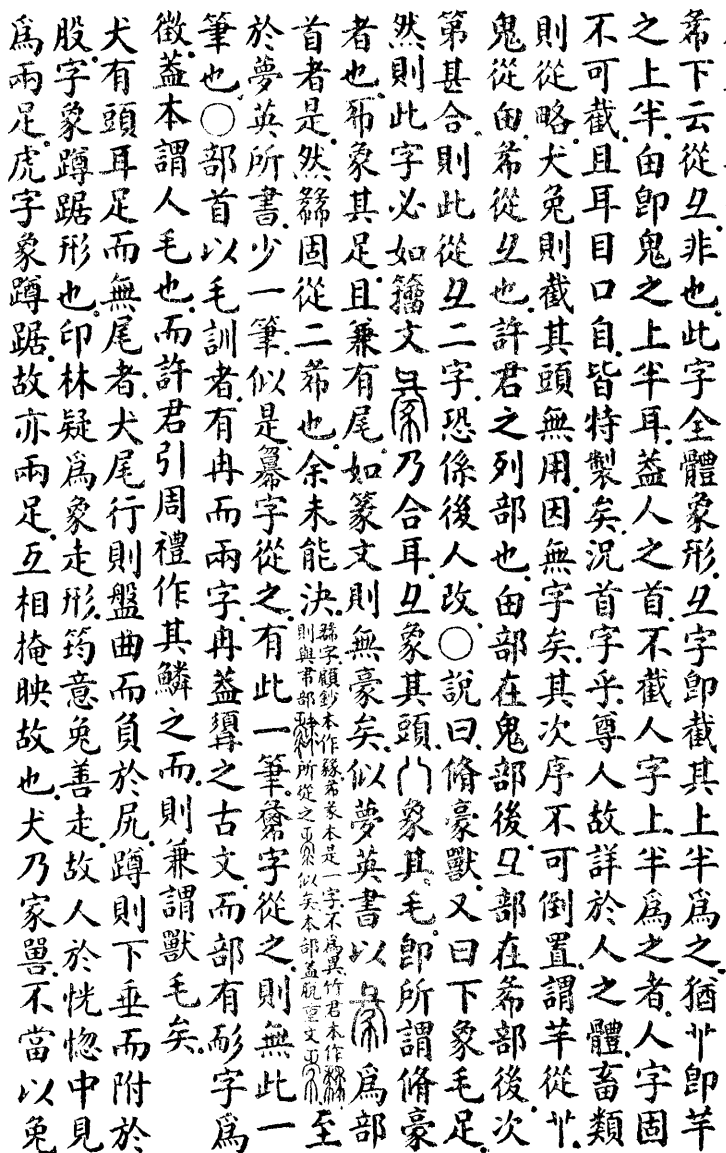 㣇下云從彑非也此字全體象形彑字卽截其上半爲之猶𦫳卽芉
之上半甶卽鬼之上半耳葢人之首不截人字上半爲之者人字固
不可截且耳目口自皆特製矣況首字乎尊人故詳於人之體畜類
則從略犬兔則截其頭無用因無字矣其次序不可倒置謂芉從𦫳
鬼從甶㣇從彑也許君之列部也甶部在鬼部後彑部在㣇部後次
第甚合則此從彑二字恐係後人改〇說曰脩豪獸又曰下象毛足
然則此字必如籒文乃合耳彑象其頭八象其毛卽所謂脩豪
者也㣇象其足且兼有尾如篆文則無豪矣似夢英書以爲部
首者是然𢑹固從二㣇也余未能決𢑹字顧鈔本作緣㣇彖本是一字不爲異竹君本作則與㣇部所從之似矣本部葢脫重文至
於夢英所書少一筆似是㬥字從之有此一筆㣇字從之則無此一
筆也〇部首以毛訓者有冉而兩字冉葢須冉之古文而部有耏字爲
徵葢本謂人毛也而許君引周禮作其鱗之而則兼謂獸毛矣
犬有頭耳足而無尾者犬尾行則盤曲而負於尻蹲則下垂而附於
股字象蹲踞形也印林疑爲象走形筠意兔善走故人於恍惚中見
爲兩足虎字象蹲踞故亦兩足互相掩映故也犬乃家嘼不當以兔